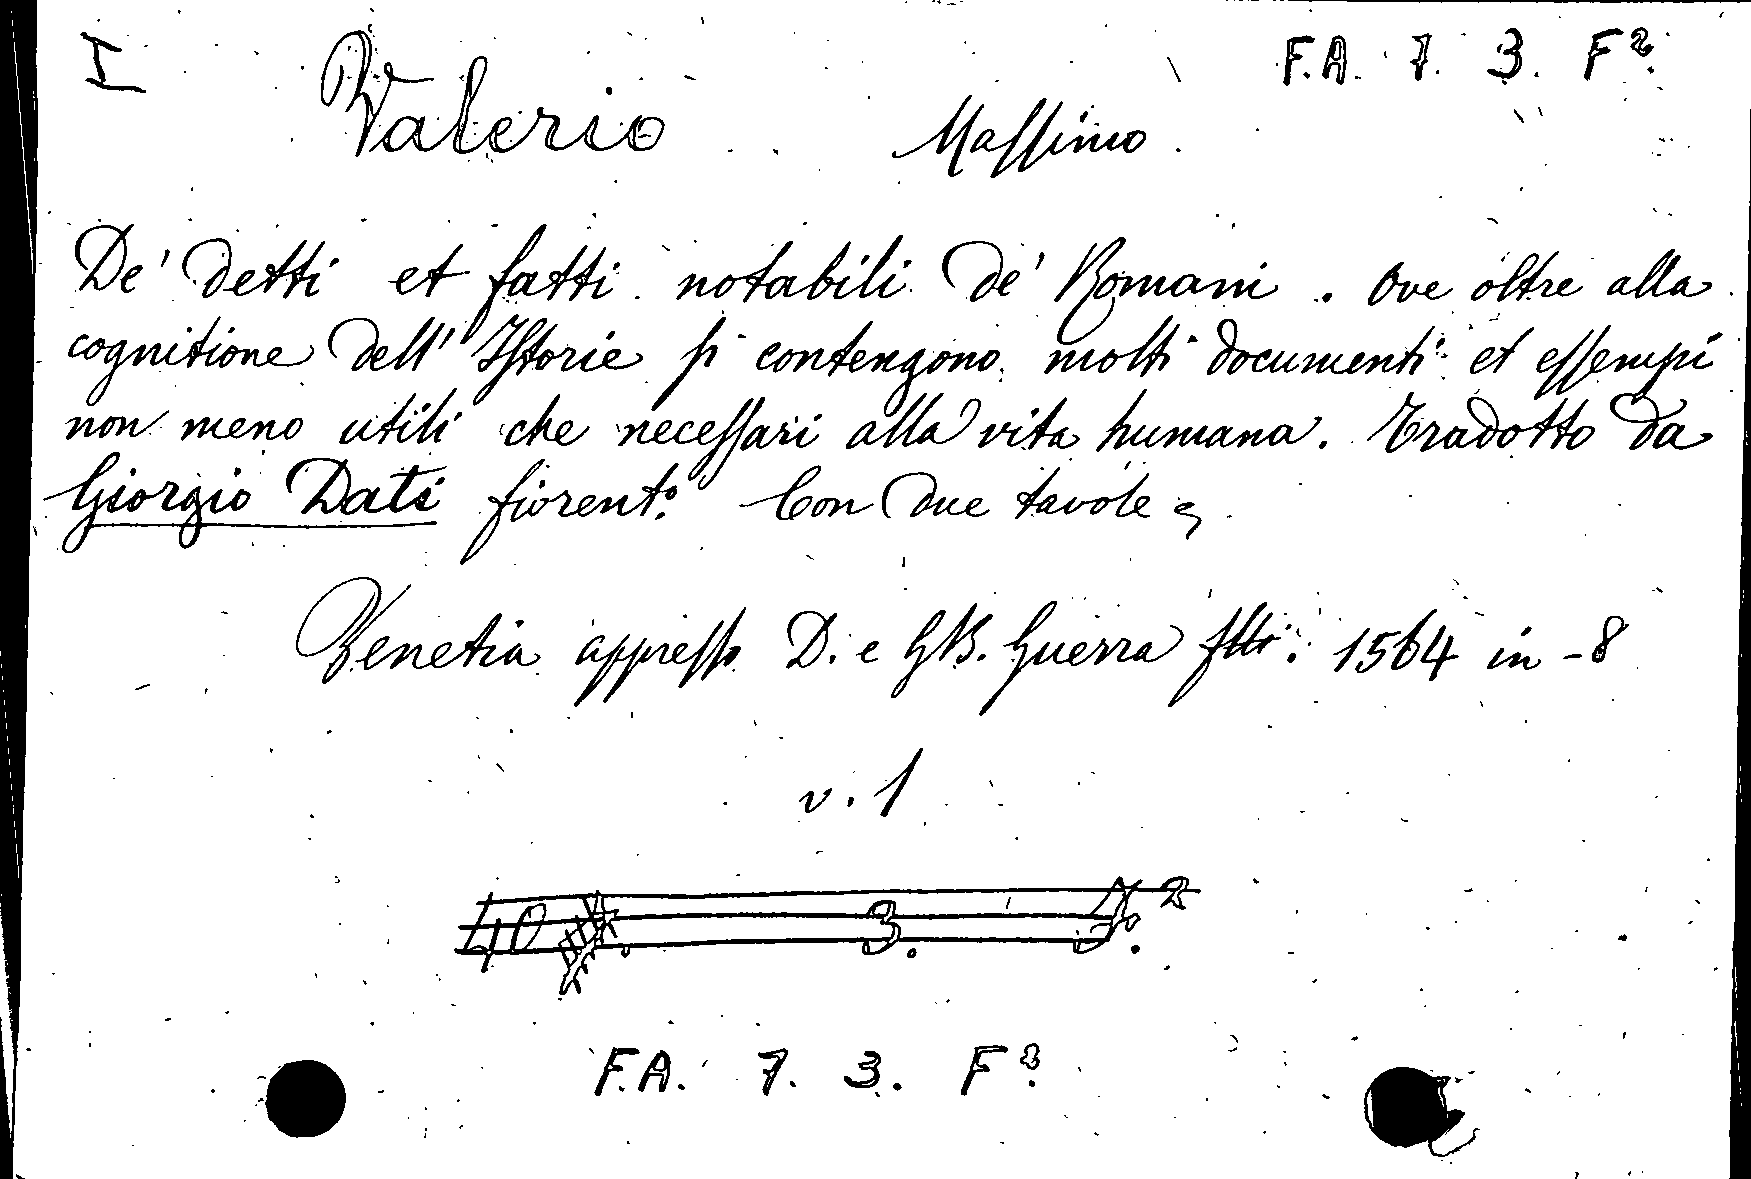 I Valerio Massimo. F.A. 7. 3. F².
De' detti et fatti notabili de' Romani. Ove oltre alla
cognitione dell' Istorie si contengono molti documenti et essempi
non meno utili che necessari alla vita humana. Tradotto da
Giorgio Dati fiorent.º Con due tavole
Venetia appresso D. e G.B. Guerra flli. 1564 in-8
v. 1
40 3.
F.A. 7. 3. F².